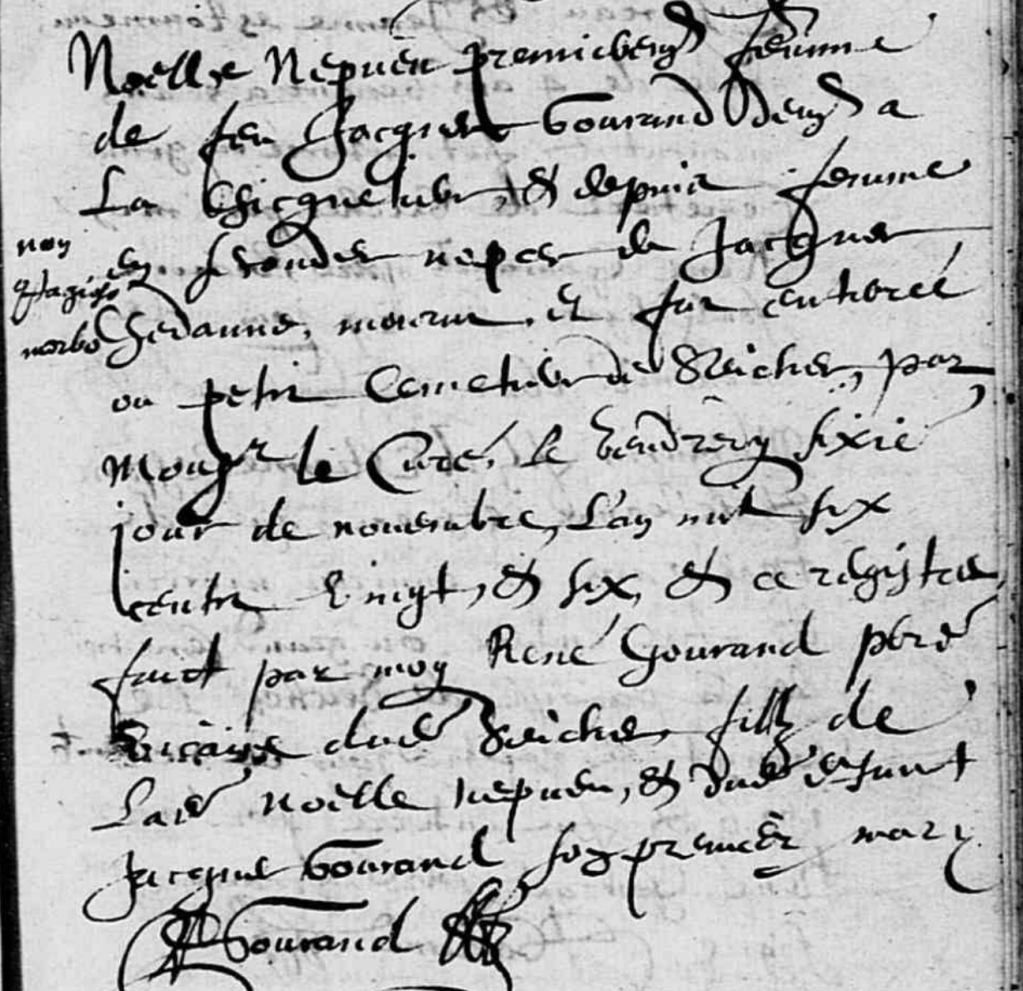 Noelle Nepueu premierem^t femme
de feu Jacques Gourand dem^t a
La Chicquetiere, & depuis femme
en secondes nopces de Jacques
Chedanne, mourut et fut enterré
ou petit Cemetiere de Seiches, par
Mons^r le Curé, le vendredy sixie
jour de novembre, L'an mil six
centz vingt, & six, & ce registre
faict par moy René Gourand pbre
vicaire dud Seiches filz de
Lad Noelle Nepueu, & dud defunct
Jacques Gourand son premier mary
Gourand
non
contagioso
morbo